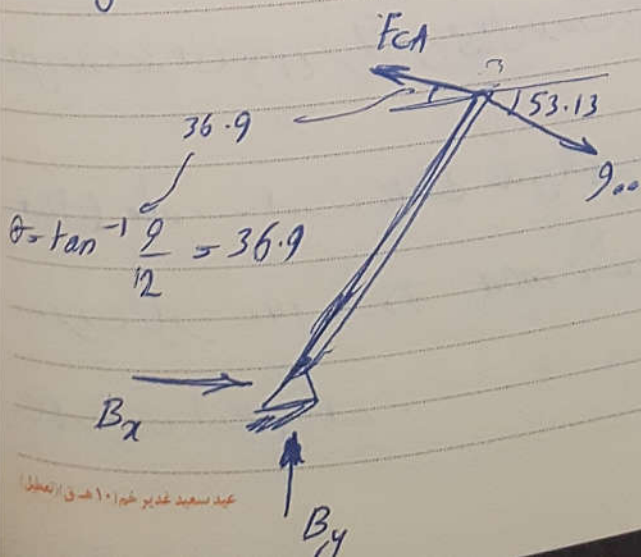 FCA
36.9
53.13
900
θ = tan⁻¹ 9/12 = 36.9
Bx
By
عید سعید غدیر خم (۱۰ هـ ق) (تعطیل)